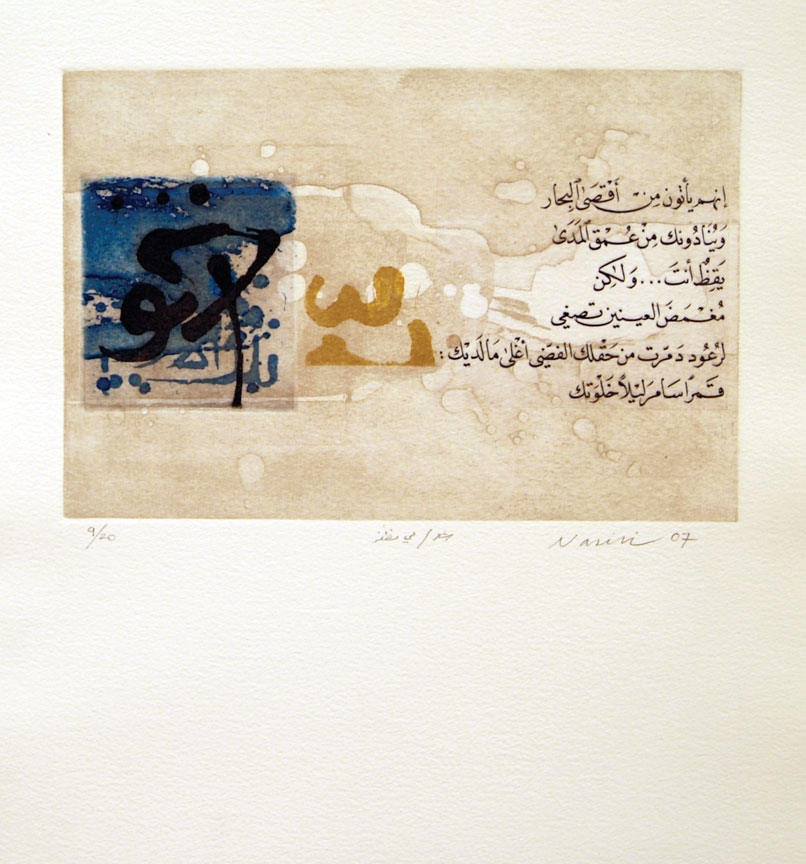 إنهم يأتون مِنْ أقْصَى البِحار
وَيُنَادُونك مِنْ عُمْقِ المَدَى
يَقِظٌ أنتَ... وَلٰكِن
مُغْمَضَ العينين تصغي
لرُعُود دَمّرت من حَقلك الفضّي أغْلى مَا لَدَيْك :
قَمرًا سَامَرَ لَيْلاً خَلْوَتك
9/20
Nasiri 07